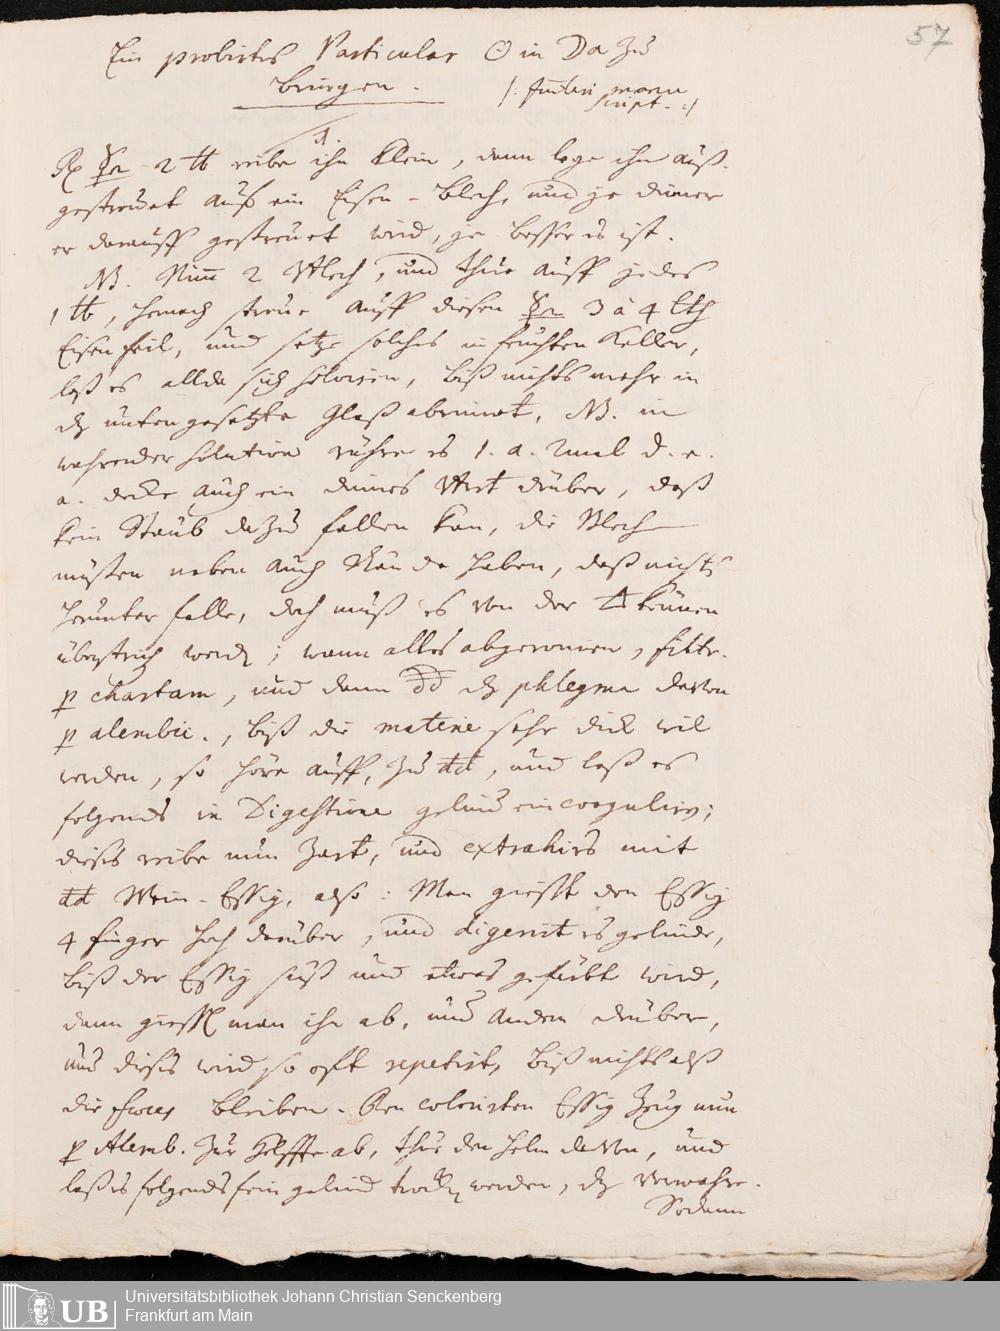 57
Ein probirtes Particular ☉ in Da zu
bringen.
/: manu
script. :/
1.
℞ 2 ℔ reibe ihn klein, dann lege ihn auß-
gestreuet auf ein Eisen-Blech, und je dünner
er darauff gestreuet wird, je besser es ist.
NB. Nim̅ 2 Blech, und thue auff jedes
1 ℔, hernach streue auff diesen 3 à 4 lth
Eisenfeil, und setze solches in feuchten Keller,
laß es allda sich solviren, biß nichts mehr in
dz untengesetzte Glaß abrinnet, NB. in
wehrender solution rühre es 1. a. 2mal d.
a. decke auch ein dünnes drüber, daß
kein Staub dazu fallen kan, die Blech
müßen neben auch Rände haben, daß nichts
herunter falle, doch muß es von der 🜁 können
überstrich werdẽ; wann alles abgeronnen, filtr.
p chartam, und dann dd dz phlegma davon
p alembic., biß die materie sehr dick wil
werden, so höre auff, zu dd, und laß es
folgends in Digestione gelind ein coaguliren;
dieses reibe nun zart, und extrahirs mit
dd Wein-Essig, also: Man giesst den Essig
4 finger hoch darüber, und digerirt es gelinde,
biß der Essig süß und etwas gefärbt wird,
dann giesst man ihn ab, und andern drüber,
und dieses wird so oft repetirt, biß nichts alß
die fæces bleiben. Den colorirten Essig zeug nun
p Alemb. zur Helffte ab, thue den helm davon, und
laß es folgends fein gelind trocken werden, dz verwahre.
Sodann
UB
Universitätsbibliothek Johann Christian Senckenberg
Frankfurt am Main